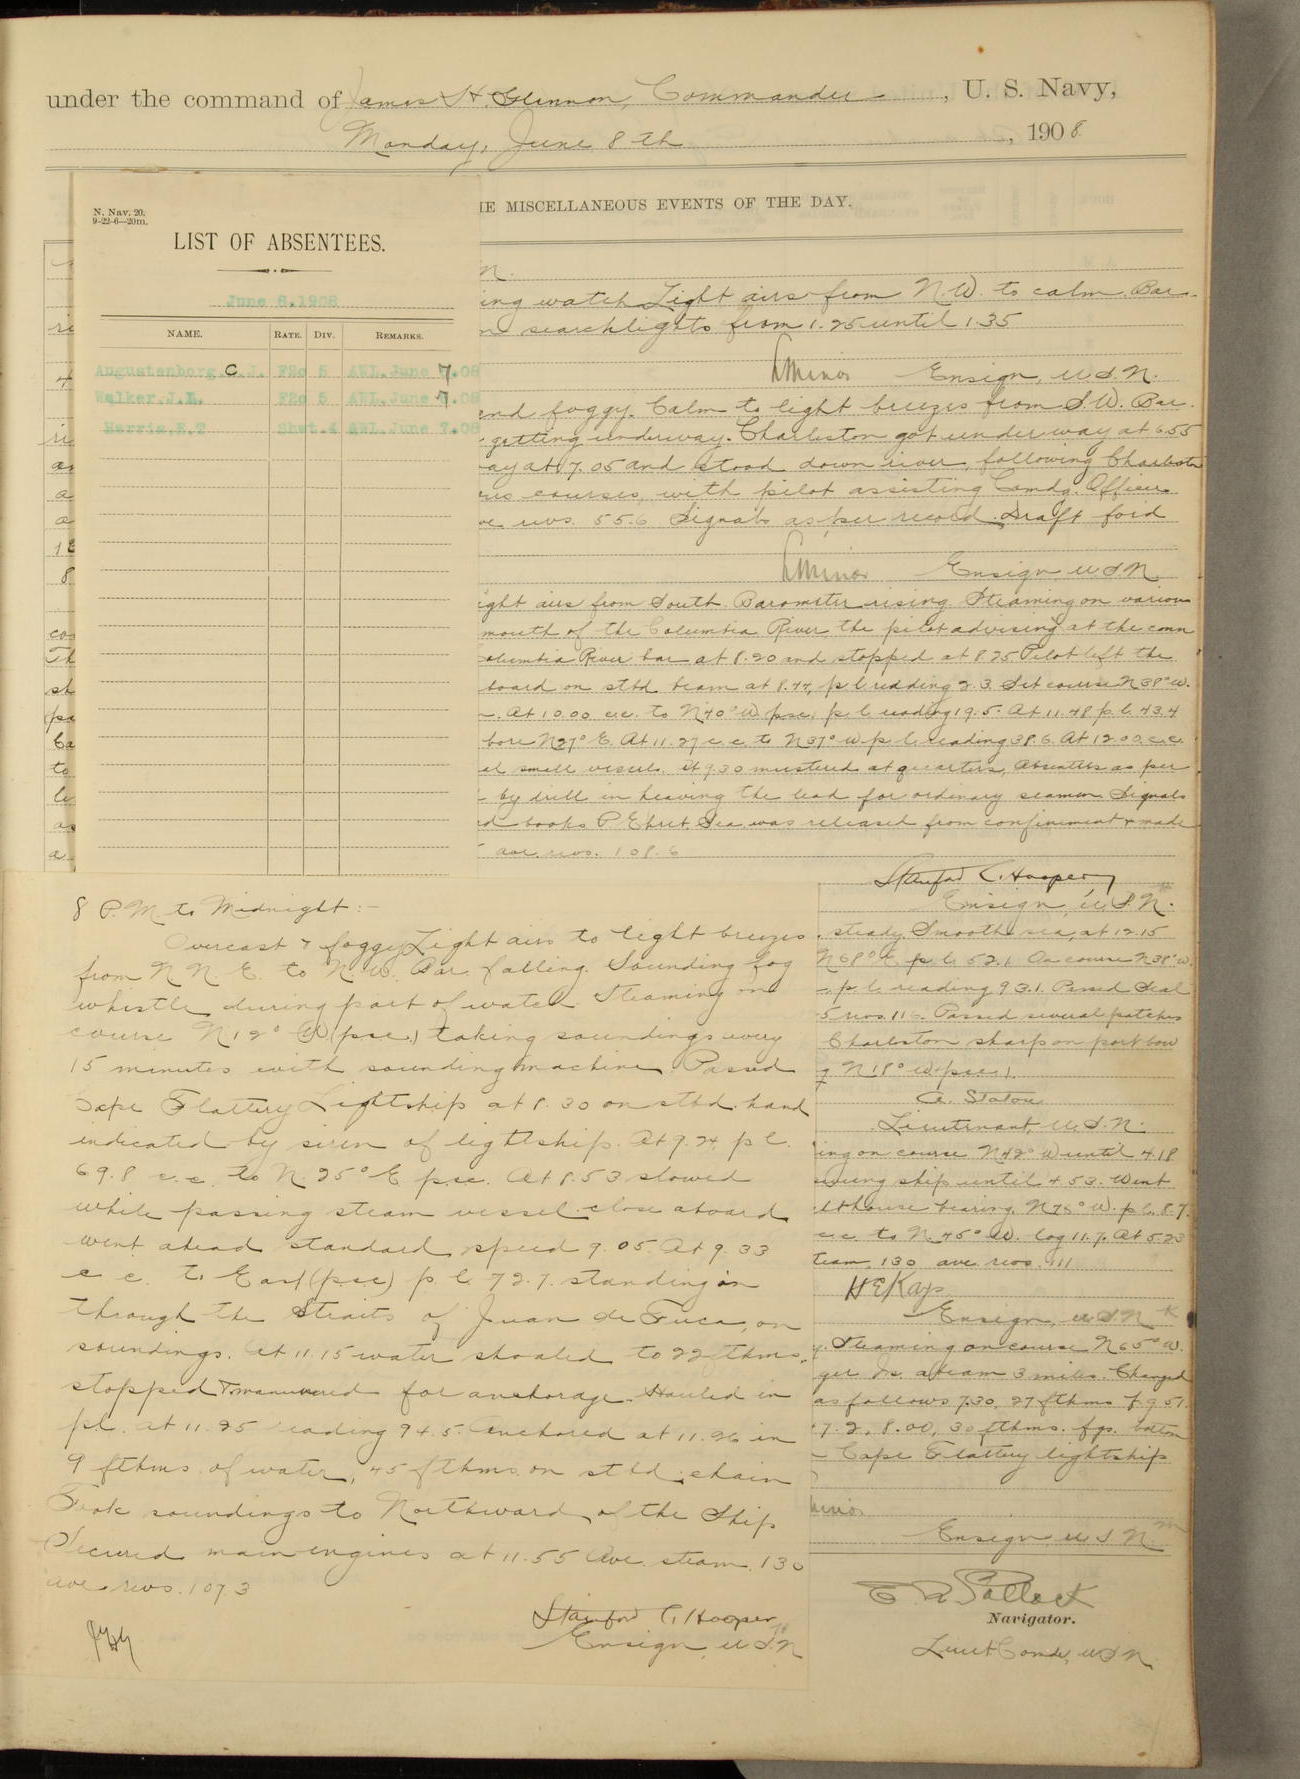 under the command of James H. Glennon, Commander, U. S. Navy,
Monday, June 8th, 1908
N. Nav. 20.
9-22-6—20m.
LIST OF ABSENTEES.
June 8.1908
NAME. RATE. DIV. REMARKS.
Augustenborg C.J. F2c 5 AWL.June 7.08
Walker.J.L. F2c 5 AWL.June 7.08
Harris.E.T Shwt.4 AWL.June 7.08
HE MISCELLANEOUS EVENTS OF THE DAY.
ing watch Light airs from N.W. to calm. Bar.
searchlights from 1.25 until 1.35
LMinor Ensign, U.S.N.
and foggy. Calm to light breezes from S.W. Bar.
getting underway. Charleston got under way at 6.55
way at 7.05 and stood down river, following Charleston
courses, with pilot assisting Comdg. Officer
revs. 55.6 Signals as per record. Draft for'd
LMinor Ensign U.S.N
ight airs from South. Barometer rising. Steaming on various
mouth of the Columbia River the pilot advising at the conn
olumbia River bar at 8.20 and stopped at 8.25 Pilot left the
board on stbd beam at 8.44, p l redding 2.3. Set course N38°W.
At 10.00 c.c. to N40°W psc, p. l. reading 19.5. At 11.48 p.l. 43.4
bore N27°E. At 11.27 c.c. to N37°W p.l. reading 38.6. At 12.00 c.c.
small vessels. At 9.30 mustered at quarters, Absentees as per
by drill in heaving the lead for ordinary seamen. Signals
books P. Ehret, Sea. was released from confinement & made
ave. revs. 108.6
Stanford C. Hooper
Ensign, U.S.N.
steady Smooth sea, at 12.15
N68°E p.l. 52.1 On course N38°W.
p.l. reading 93.1. Passed Seal
revs. 11 Passed several patches
Charleston sharp on port bow
N18°W (psc).
A. Staton
Lieutenant, U.S.N.
ing on course N42°W until 4.18
swung ship until 4.53. Went
lthouse bearing N78°W. p.l. 8.7.
c.c. to N.45°W. log 11.7. At 5.23
steam, 130 ave. revs. 111
H E Kays
Ensign, U.S.N
Steaming on course N65°W.
abeam 3 miles. Changed
as follows 7.30, 27 fthms
7.2, 8.00, 30 fthms. fgs. bottom
Cape Flattery lightship
Minor
Ensign U.S.N.
E R Pollock
Navigator.
Lieut Comdr, U.S.N.
8 P.M to Midnight:-
Overcast & foggy Light airs to light breezes
from N N E. to N. W. Bar. falling. Sounding fog
whistle during part of watch. Steaming on
course N12°W (psc.) taking soundings every
15 minutes with sounding machine. Passed
Cape Flattery Lightship at 8.30 on stbd. hand
indicated by siren of lightship. At 9.24 p l.
69.8 c.c. to N.25°E psc. At 8.53 slowed
while passing steam vessel close aboard
went ahead standard speed 9.05. At 9.33
c c. to East (psc) p. l. 72.7. standing in
through the Straits of Juan de Fuca, on
soundings. At 11.15 water shoaled to 22 fthms.
stopped & manuvered for anchorage. Hauled in
p.l. at 11.25 reading 94.5. Anchored at 11.26 in
9 fthms. of water, 45 fthms. on stbd. chain
Took soundings to Northward of the Ship
Secured main engines at 11.55 Ave. steam. 130
ave revs. 107.3
Stanford C. Hooper
Ensign, U.S.N